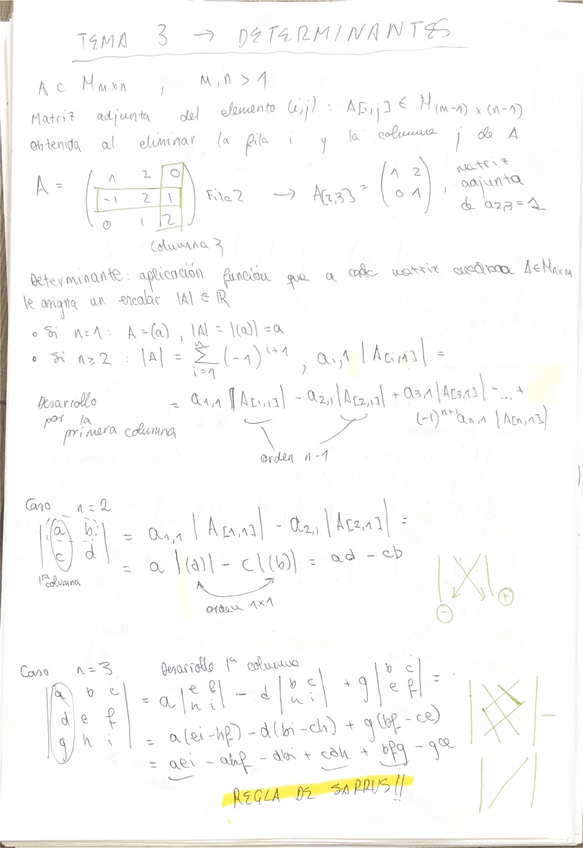 TEMA 3 → DETERMINANTES
A ∈ Mmxn , m,n > 1
Matriz adjunta del elemento (i,j) : A[i,j] ∈ M(m-1) x (n-1)
obtenida al eliminar la fila i y la columna j de A
A = ( 1 2 0
-1 2 1
0 1 2 ) Fila 2 → A[2,3] = ( 1 2
0 1 ) , matriz
adjunta
de a2,3 = 1
Columna 3
Determinante: aplicación función que a cada matriz cuadrada A∈Mnxn
le asigna un escalar |A| ∈ ℝ
• Si n=1 : A=(a) , |A| = |(a)| = a
• Si n≥2 : |A| = Σ i=1 n (-1)^i+1 , ai,1 |A[i,1]| =
= a1,1 |A[1,1]| - a2,1 |A[2,1]| + a3,1 |A[3,1]| - ... +
(-1)^n+1 an,1 |A[n,1]|
Desarrollo
por la
primera columna
orden n-1
Caso n=2
| a b
c d | = a1,1 |A[1,1]| - a2,1 |A[2,1]| =
= a |(d)| - c |(b)| = ad - cb
1ª columna
orden 1x1
- +
Caso n=3 Desarrollo 1ª columna
| a b c
d e f
g h i | = a | e f
h i | - d | b c
h i | + g | b c
e f | =
= a(ei-hf) - d(bi-ch) + g(bf-ce)
= aei - ahf - dbi + cdh + bfg - gce
REGLA DE SARRUS!!